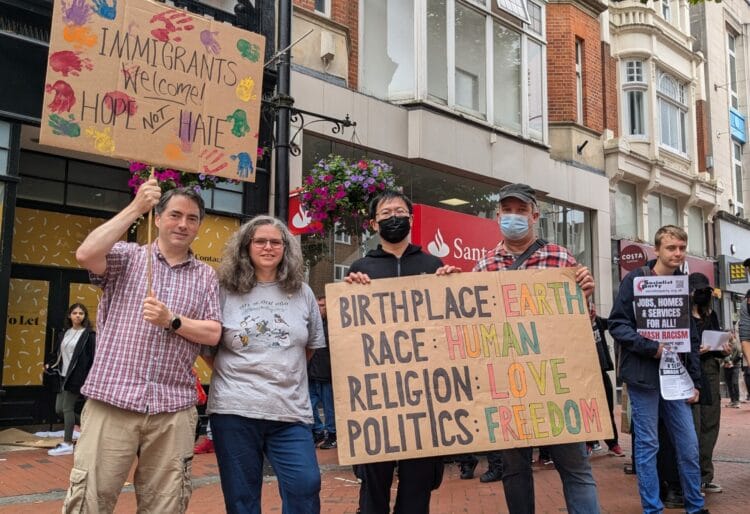 IMMIGRANTS
Welcome!
HOPE NOT HATE
BIRTHPLACE: EARTH
RACE: HUMAN
RELIGION: LOVE
POLITICS: FREEDOM
Santa
COSTA
Socialist
Party
JOBS, HOMES &
SERVICES
FOR ALL!
SMASH RACISM
To Let
Contact